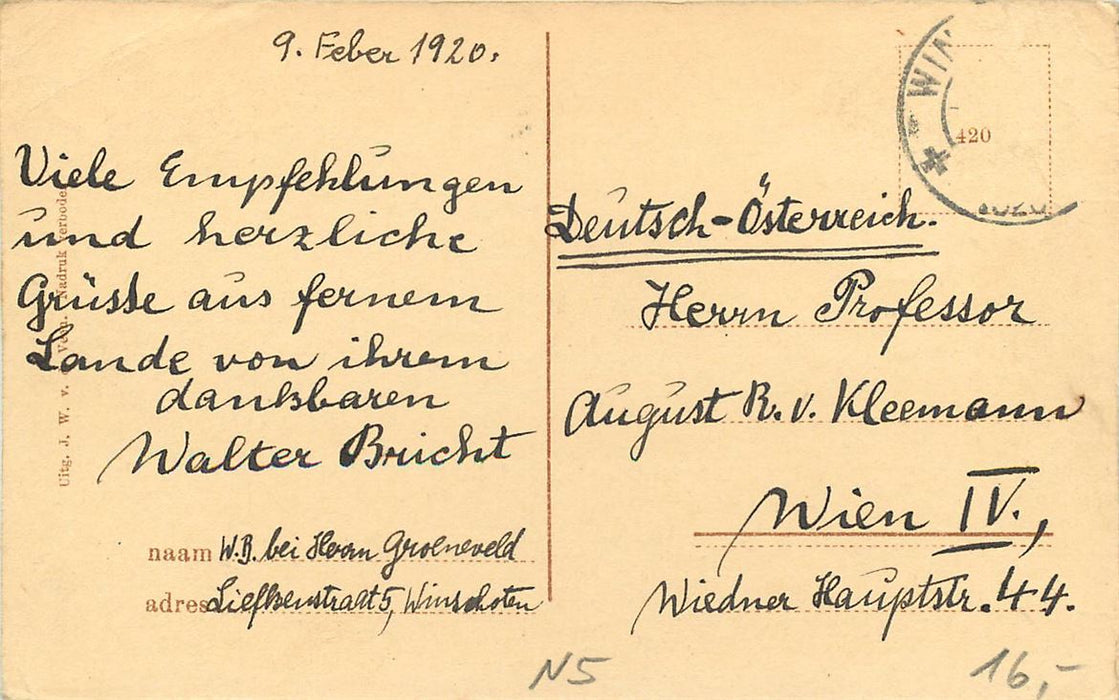 9. Feber 1920.
Viele Empfehlungen
und herzliche
Grüsse aus fernem
Lande von ihrem
dankbaren
Walter Bricht
naam W.B. bei Herrn Groeneveld
adres Liefkenstraat 5, Winschoten
Uitg. J. W. v. Nadruk verboden
WIN
420
Deutsch-Österreich.
Herrn Professor
August R. v. Kleemann
Wien IV.,
Wiedner Hauptstr. 44.
N5
16,-